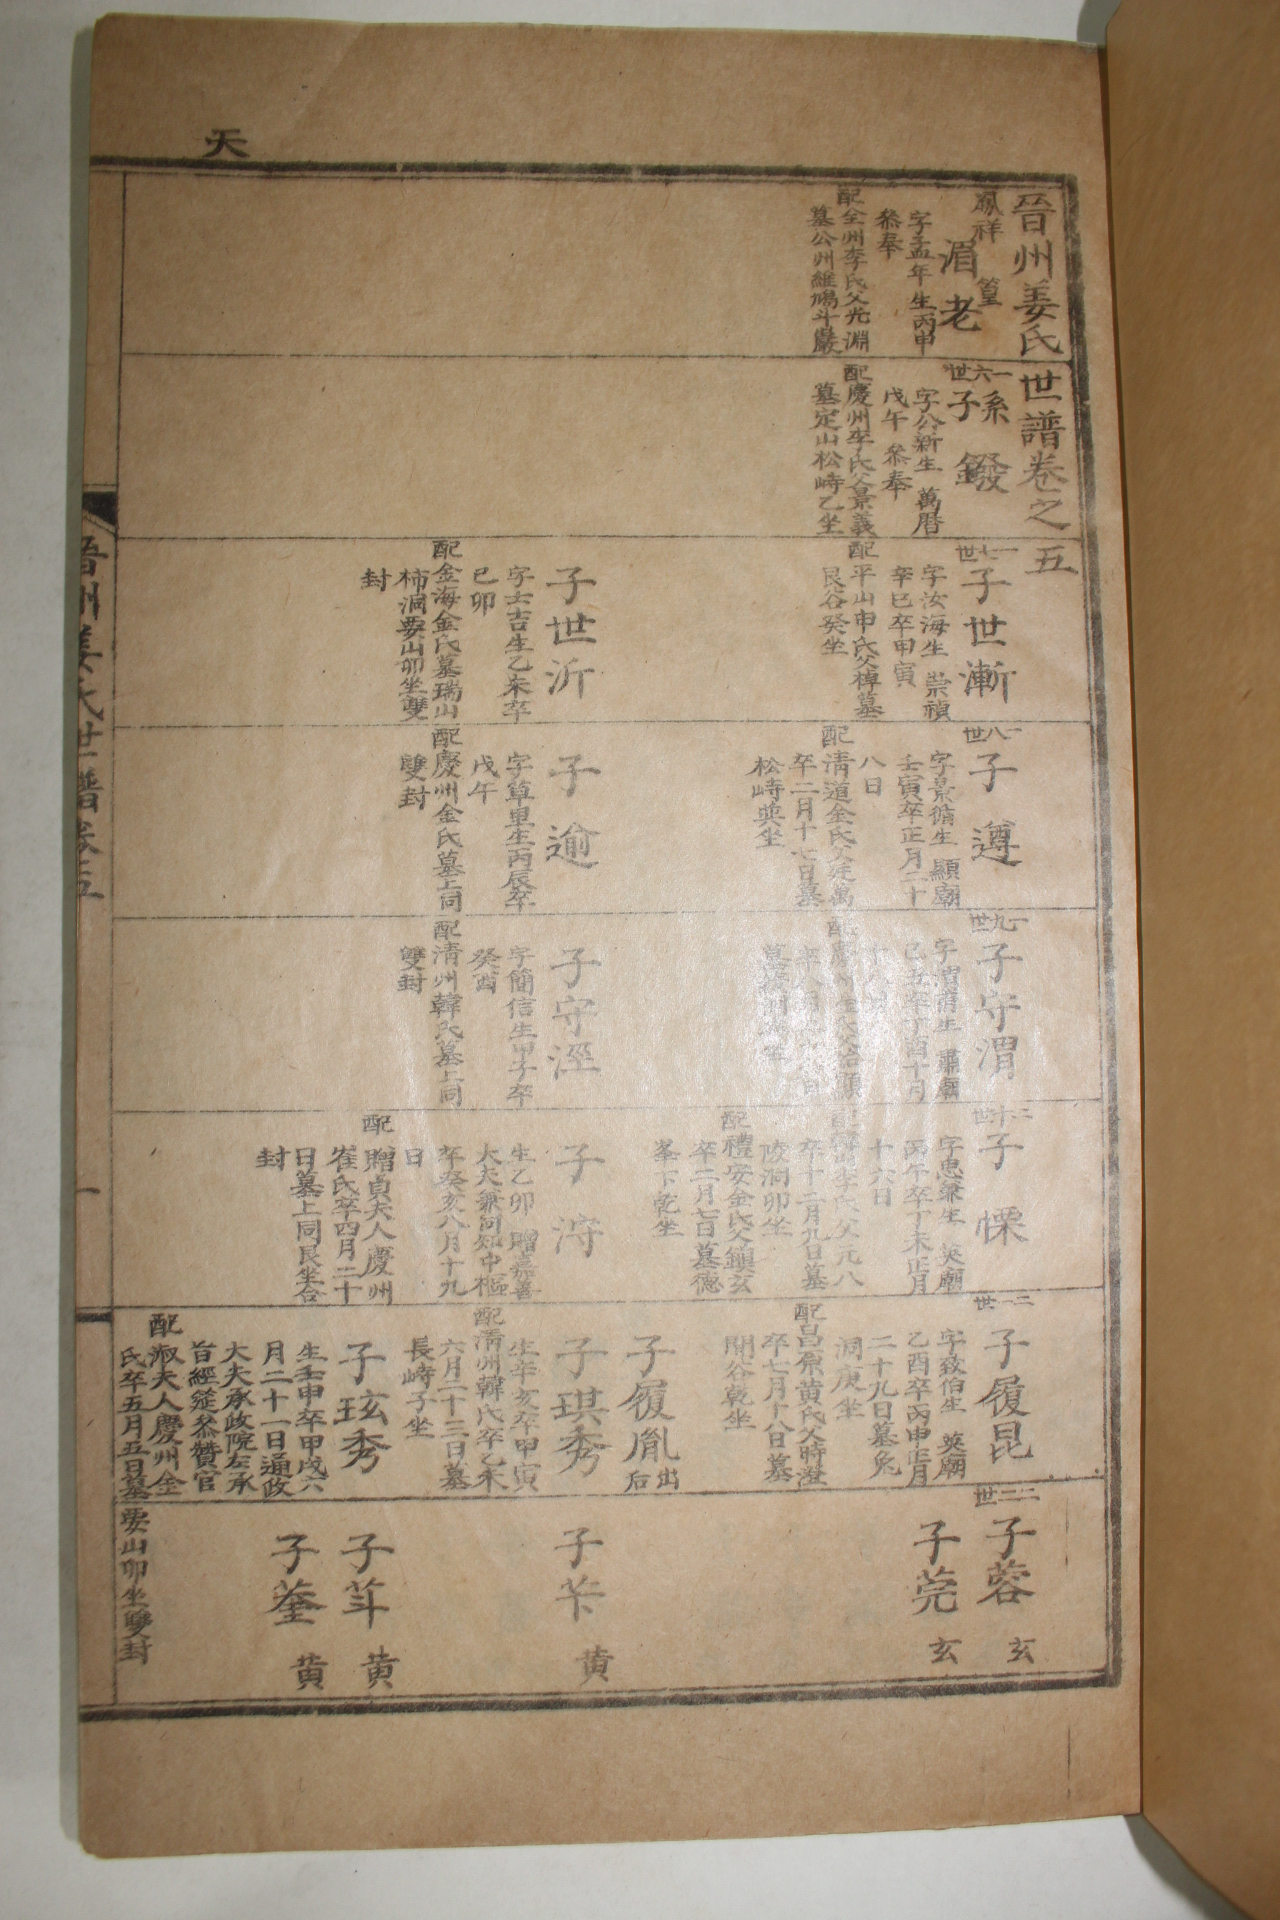 天
晉州姜氏世譜卷之五
鳳祥
篁
湄老
字孟年生丙申
叅奉
配全州李氏父光淵
墓公州維鳩斗巖
一六世
孫
子鏺
字公新生 萬曆
戊午 叅奉
配慶州李氏父景義
墓定山松峙乙坐
一七世
子世漸
字汝海生 崇禎
辛巳卒甲寅
配平山申氏父棹墓
艮谷癸坐
子世沂
字士吉生乙未卒
己卯
配金海金氏墓瑞山
柿洞要山卯坐雙
封
一八世
子遵
字景循生 顯廟
壬寅卒正月二十
八日
配清道金氏父廷萬
卒二月十七日墓
松峙巽坐
子逾
字草里生丙辰卒
戊午
配慶州金氏墓上同
雙封
一九世
子守渭
字清甫生 肅廟
己丑卒丁酉十月
子守涇
字簡信生甲子卒
癸酉
配清州韓氏墓上同
雙封
二十世
子慄
字忠兼生 英廟
丙午卒丁未正月
十六日
李氏父元八
卒十二月九日墓
陵洞卯坐
配禮安金氏父鎭玄
卒二月七日墓德
峯下乾坐
子涍
生乙卯 贈嘉善
大夫兼同知中樞
卒癸亥八月十九
日
配贈貞夫人慶州
崔氏卒四月二十
日墓上同艮坐合
封
二一世
子履昆
字致伯生 英廟
乙酉卒丙申正月
二十九日墓兔
洞庚坐
配昌原黄氏父時澄
卒七月十八日墓
開谷乾坐
子履胤
出后
子琪秀
生辛亥卒甲寅
六月二十三日墓
長峙子坐
配清州韓氏卒乙未
子玹秀
生壬申卒甲戌六
月二十一日通政
大夫承政院左承
旨經筵叅贊官
配淑夫人慶州金
氏卒五月五日墓
要山卯坐雙封
二二世
子蓉
玄
子莞
玄
子苄
黄
子茸
黄
子荃
黄
晉州姜氏世譜卷五
一